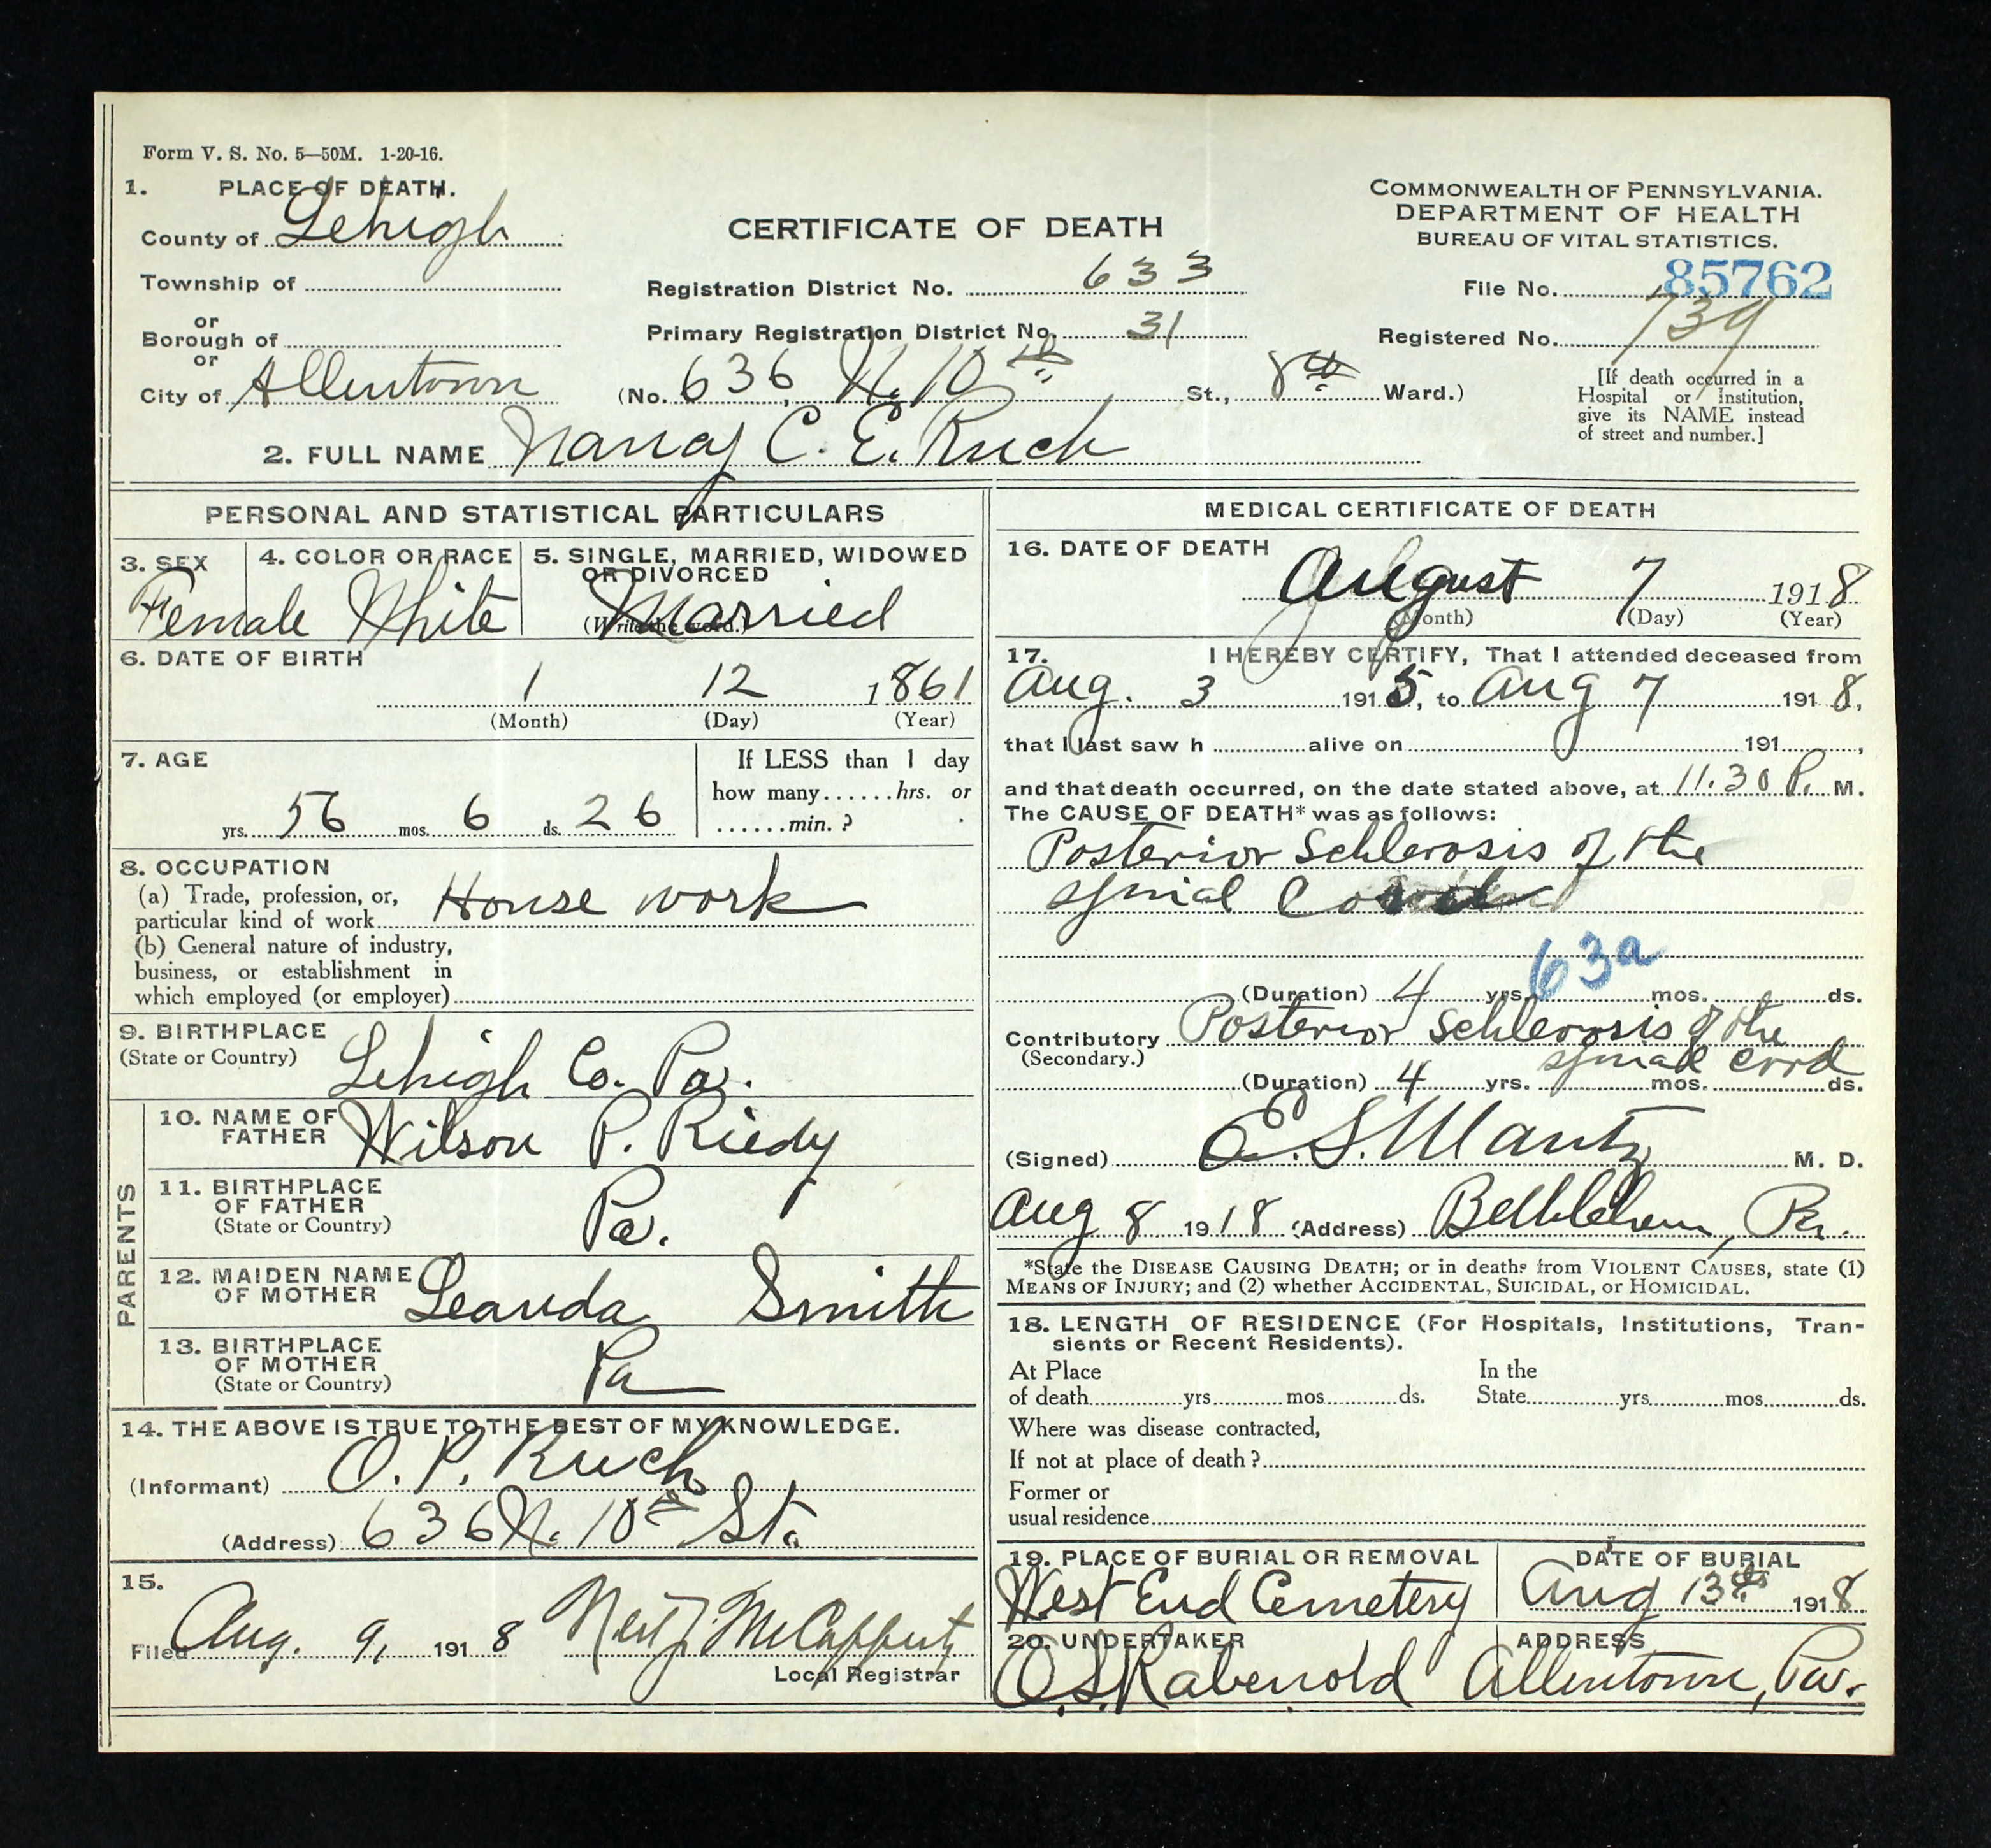 Form V. S. No. 5—50M. 1-20-16.
1. PLACE OF DEATH.
County of Lehigh
Township of
or
Borough of
or
City of Allentown
CERTIFICATE OF DEATH
Registration District No. 633
Primary Registration District No. 31
(No. 636 N. 10th St., 8th Ward.)
COMMONWEALTH OF PENNSYLVANIA.
DEPARTMENT OF HEALTH
BUREAU OF VITAL STATISTICS.
File No. 85762
Registered No. 739
[If death occurred in a
Hospital or Institution,
give its NAME instead
of street and number.]
2. FULL NAME Nancy C. E. Ruch
PERSONAL AND STATISTICAL PARTICULARS
3. SEX
Female
4. COLOR OR RACE
White
5. SINGLE, MARRIED, WIDOWED
OR DIVORCED
(Write the word.)
Married
6. DATE OF BIRTH
1 12 1861
(Month) (Day) (Year)
7. AGE
yrs. 56 mos. 6 ds. 26
If LESS than 1 day
how many......hrs. or
......min. ?
8. OCCUPATION
(a) Trade, profession, or,
particular kind of work House work
(b) General nature of industry,
business, or establishment in
which employed (or employer)
9. BIRTHPLACE
(State or Country)
Lehigh Co. Pa.
PARENTS
10. NAME OF
FATHER
Wilson P. Riedy
11. BIRTHPLACE
OF FATHER
(State or Country)
Pa.
12. MAIDEN NAME
OF MOTHER
Leanda Smith
13. BIRTHPLACE
OF MOTHER
(State or Country)
Pa
14. THE ABOVE IS TRUE TO THE BEST OF MY KNOWLEDGE.
(Informant) O. P. Ruch
(Address) 636 N. 10th St.
15.
Filed Aug. 9, 1918
McCafferty
Local Registrar
MEDICAL CERTIFICATE OF DEATH
16. DATE OF DEATH
August 7 1918
(Month) (Day) (Year)
17. I HEREBY CERTIFY, That I attended deceased from
Aug. 3 1915, to Aug 7 1918,
that I last saw h alive on 191 ,
and that death occurred, on the date stated above, at 11.30 P. M.
The CAUSE OF DEATH* was as follows:
Posterior Schlerosis of the
spinal Cord
63a
(Duration) 4 yrs. mos. ds.
Contributory Posterior Schlerosis of the
(Secondary.) spinal cord
(Duration) 4 yrs. mos. ds.
(Signed) E. S. Mantz M. D.
Aug 8 1918 (Address) Bethlehem, Pa.
*State the DISEASE CAUSING DEATH; or in deaths from VIOLENT CAUSES, state (1)
MEANS OF INJURY; and (2) whether ACCIDENTAL, SUICIDAL, or HOMICIDAL.
18. LENGTH OF RESIDENCE (For Hospitals, Institutions, Tran-
sients or Recent Residents).
At Place
of death yrs. mos. ds.
In the
State yrs. mos. ds.
Where was disease contracted,
If not at place of death ?
Former or
usual residence
19. PLACE OF BURIAL OR REMOVAL
West End Cemetery
DATE OF BURIAL
Aug 13th 1918
20. UNDERTAKER
O. S. Rabenold
ADDRESS
Allentown, Pa.